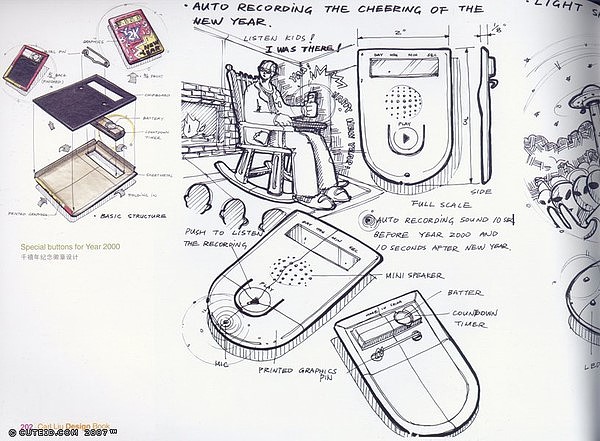 • AUTO RECORDING THE CHEERING OF THE
NEW YEAR.
• LIGHT
LISTEN KIDS!
I WAS THERE!
HAPPY NEW YEAR
GRAPHICS
CHIPBOARD
BATTERY
COUNTDOWN
TIMER
SHEETMETAL
FOLDING IN
PRINTED GRAPHICS
• BASIC STRUCTURE
2"
DAY HRS MIN SEC
PLAY
FULL SCALE
SIDE
Special buttons for Year 2000
千禧年纪念徽章设计
PUSH TO LISTEN
THE RECORDING
AUTO RECORDING SOUND 10 SEC
BEFORE YEAR 2000 AND
10 SECONDS AFTER NEW YEAR.
DAY HRS MIN SEC
PLAY
MINI SPEAKER
BATTER
COUNDOWN
TIMER
MIC
PRINTED GRAPHICS
PIN
MADE IN
LED
202 Carl Liu Design Book
© CUTEID.COM 2007™